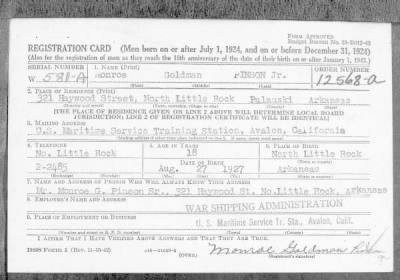 FORM APPROVED
Budget Bureau No.
REGISTRATION CARD (Men born on or after July 1, 1924, and on or before December 31, 1924)
(Also for the registration of men as they reach the 18th anniversary of the date of their birth on or after January 1, 1925.)
SERIAL NUMBER 1. NAME (Print) ORDER NUMBER
W 581-A Monroe Goldman PINSON Jr. 12568-a
2. PLACE OF RESIDENCE (Print)
321 Haywood Street, North Little Rock Pulauski Arkansas
[THE PLACE OF RESIDENCE GIVEN ON LINE 2 ABOVE WILL DETERMINE LOCAL BOARD
JURISDICTION; LINE 2 OF REGISTRATION CERTIFICATE WILL BE IDENTICAL]
3. MAILING ADDRESS
U.S. Maritime Service Training Station, Avalon, California
4. TELEPHONE 5. AGE IN YEARS 6. PLACE OF BIRTH
No. Little Rock 18 North Little Rock
DATE OF BIRTH
2-2485 Aug. 27 1927 Arkansas
7. NAME AND ADDRESS OF PERSON WHO WILL ALWAYS KNOW YOUR ADDRESS
Mr. Monroe G. Pinson Sr., 321 Haywood St. No. Little Rock, Arkansas
8. EMPLOYER'S NAME AND ADDRESS
WAR SHIPPING ADMINISTRATION
9. PLACE OF EMPLOYMENT OR BUSINESS
U. S. Maritime Service Tr. Sta., Avalon, Calif.
I AFFIRM THAT I HAVE VERIFIED ABOVE ANSWERS AND THAT THEY ARE TRUE.
DSS FORM 1 (OVER) Monroe Goldman Pinson